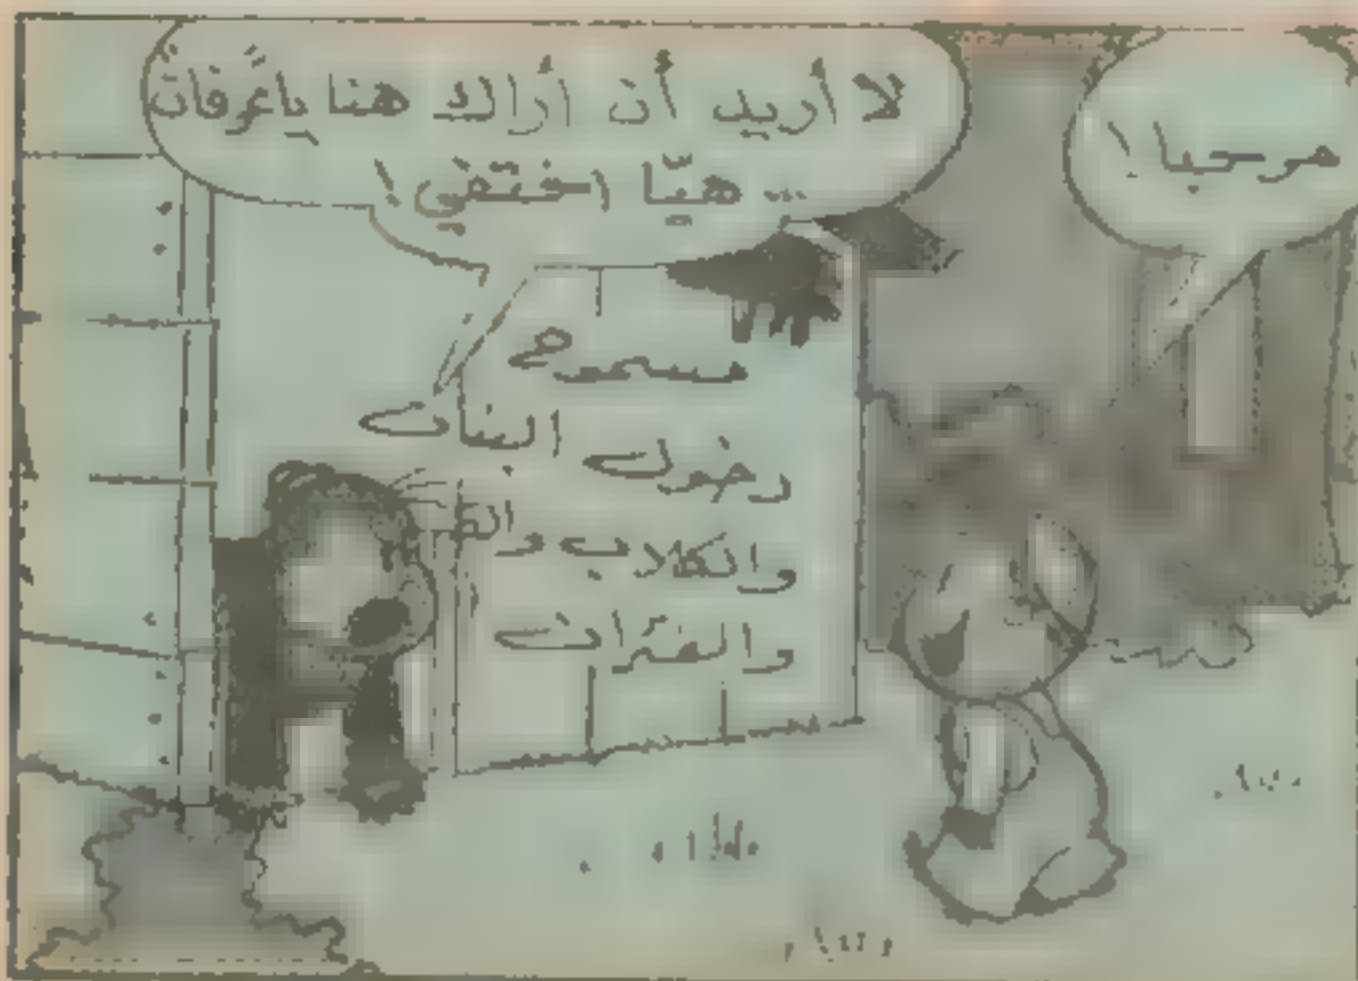 مرحبا !
لا أريد أن أراك هنا ياعرفان
... هيّا اختفي !
مسموح
دخول البنات
والكلاب
والفئران